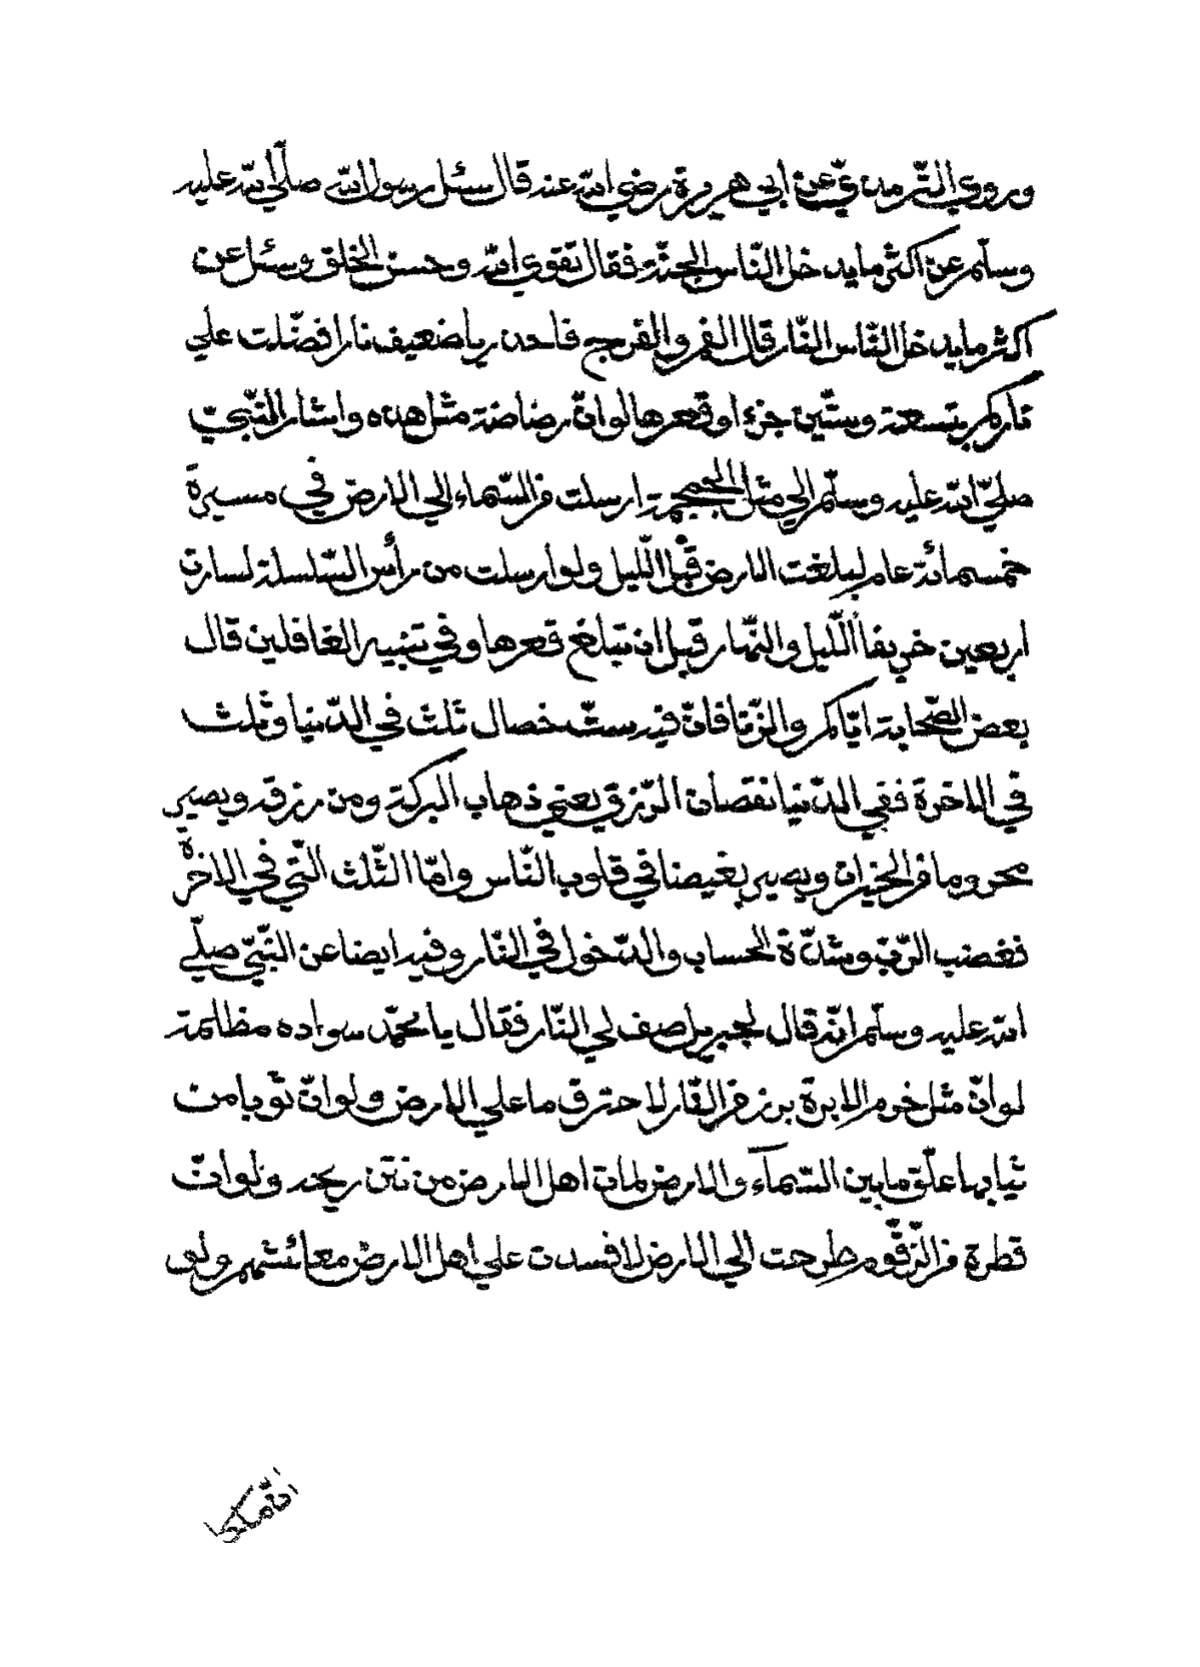 وروي الترمذيّ عن ابي هريرة رضي الله عنه قال سئل رسول الله صلّي الله عليه
وسلّم عن اكثر ما يدخل النّاس الجنّة فقال تقوي الله وحسن الخلق وسئل عن
اكثر ما يدخل النّاس النّار قال الفم والفرج فاحذر يا ضعيف نارا فضّلت علي
ناركم بتسعة وستّين جزء او قعرها لو انّ رضاضة مثل هذه واشار النّبيّ
صلّي الله عليه وسلّم الي مثل الجمجمة ارسلت من السّماء الي الارض في مسيرة
خمسمائة عام لبلغت الارض قبل اللّيل ولو ارسلت من رأس السّلسلة لسارة
اربعين خريفا اللّيل والنّهار قبل ان تبلغ قعرها وفي تنبيه الغافلين قال
بعض الصّحابة ايّاكم والزّنا فانّ فيه ستّ خصال ثلث في الدّنيا وثلث
في الاخرة ففي الدّنيا نقصان الرّزق يعني ذهاب البركة ومن رزقه ويصير
محروما من الخيران ويصير بغيضا في قلوب النّاس وامّا الثّلث الّتي في الاخرة
فغضب الرّبّ وشدّة الحساب والدّخول في النّار وفيه ايضا عن النّبيّ صلّي
الله عليه وسلّم انّه قال لجبريل صف لي النّار فقال يا محمّد سواده مظالمة
لو انّ مثل خرم الابرة برز من النّار لاحترق ما علي الارض ولو انّ ثوبا من
ثيابها علّق ما بين السّمآء والارض لمات اهل الارض من نتن ريحه ولو انّ
قطرة من الزّقّوم طرحت الي الارض لافسدت علي اهل الارض معائشهم ولو